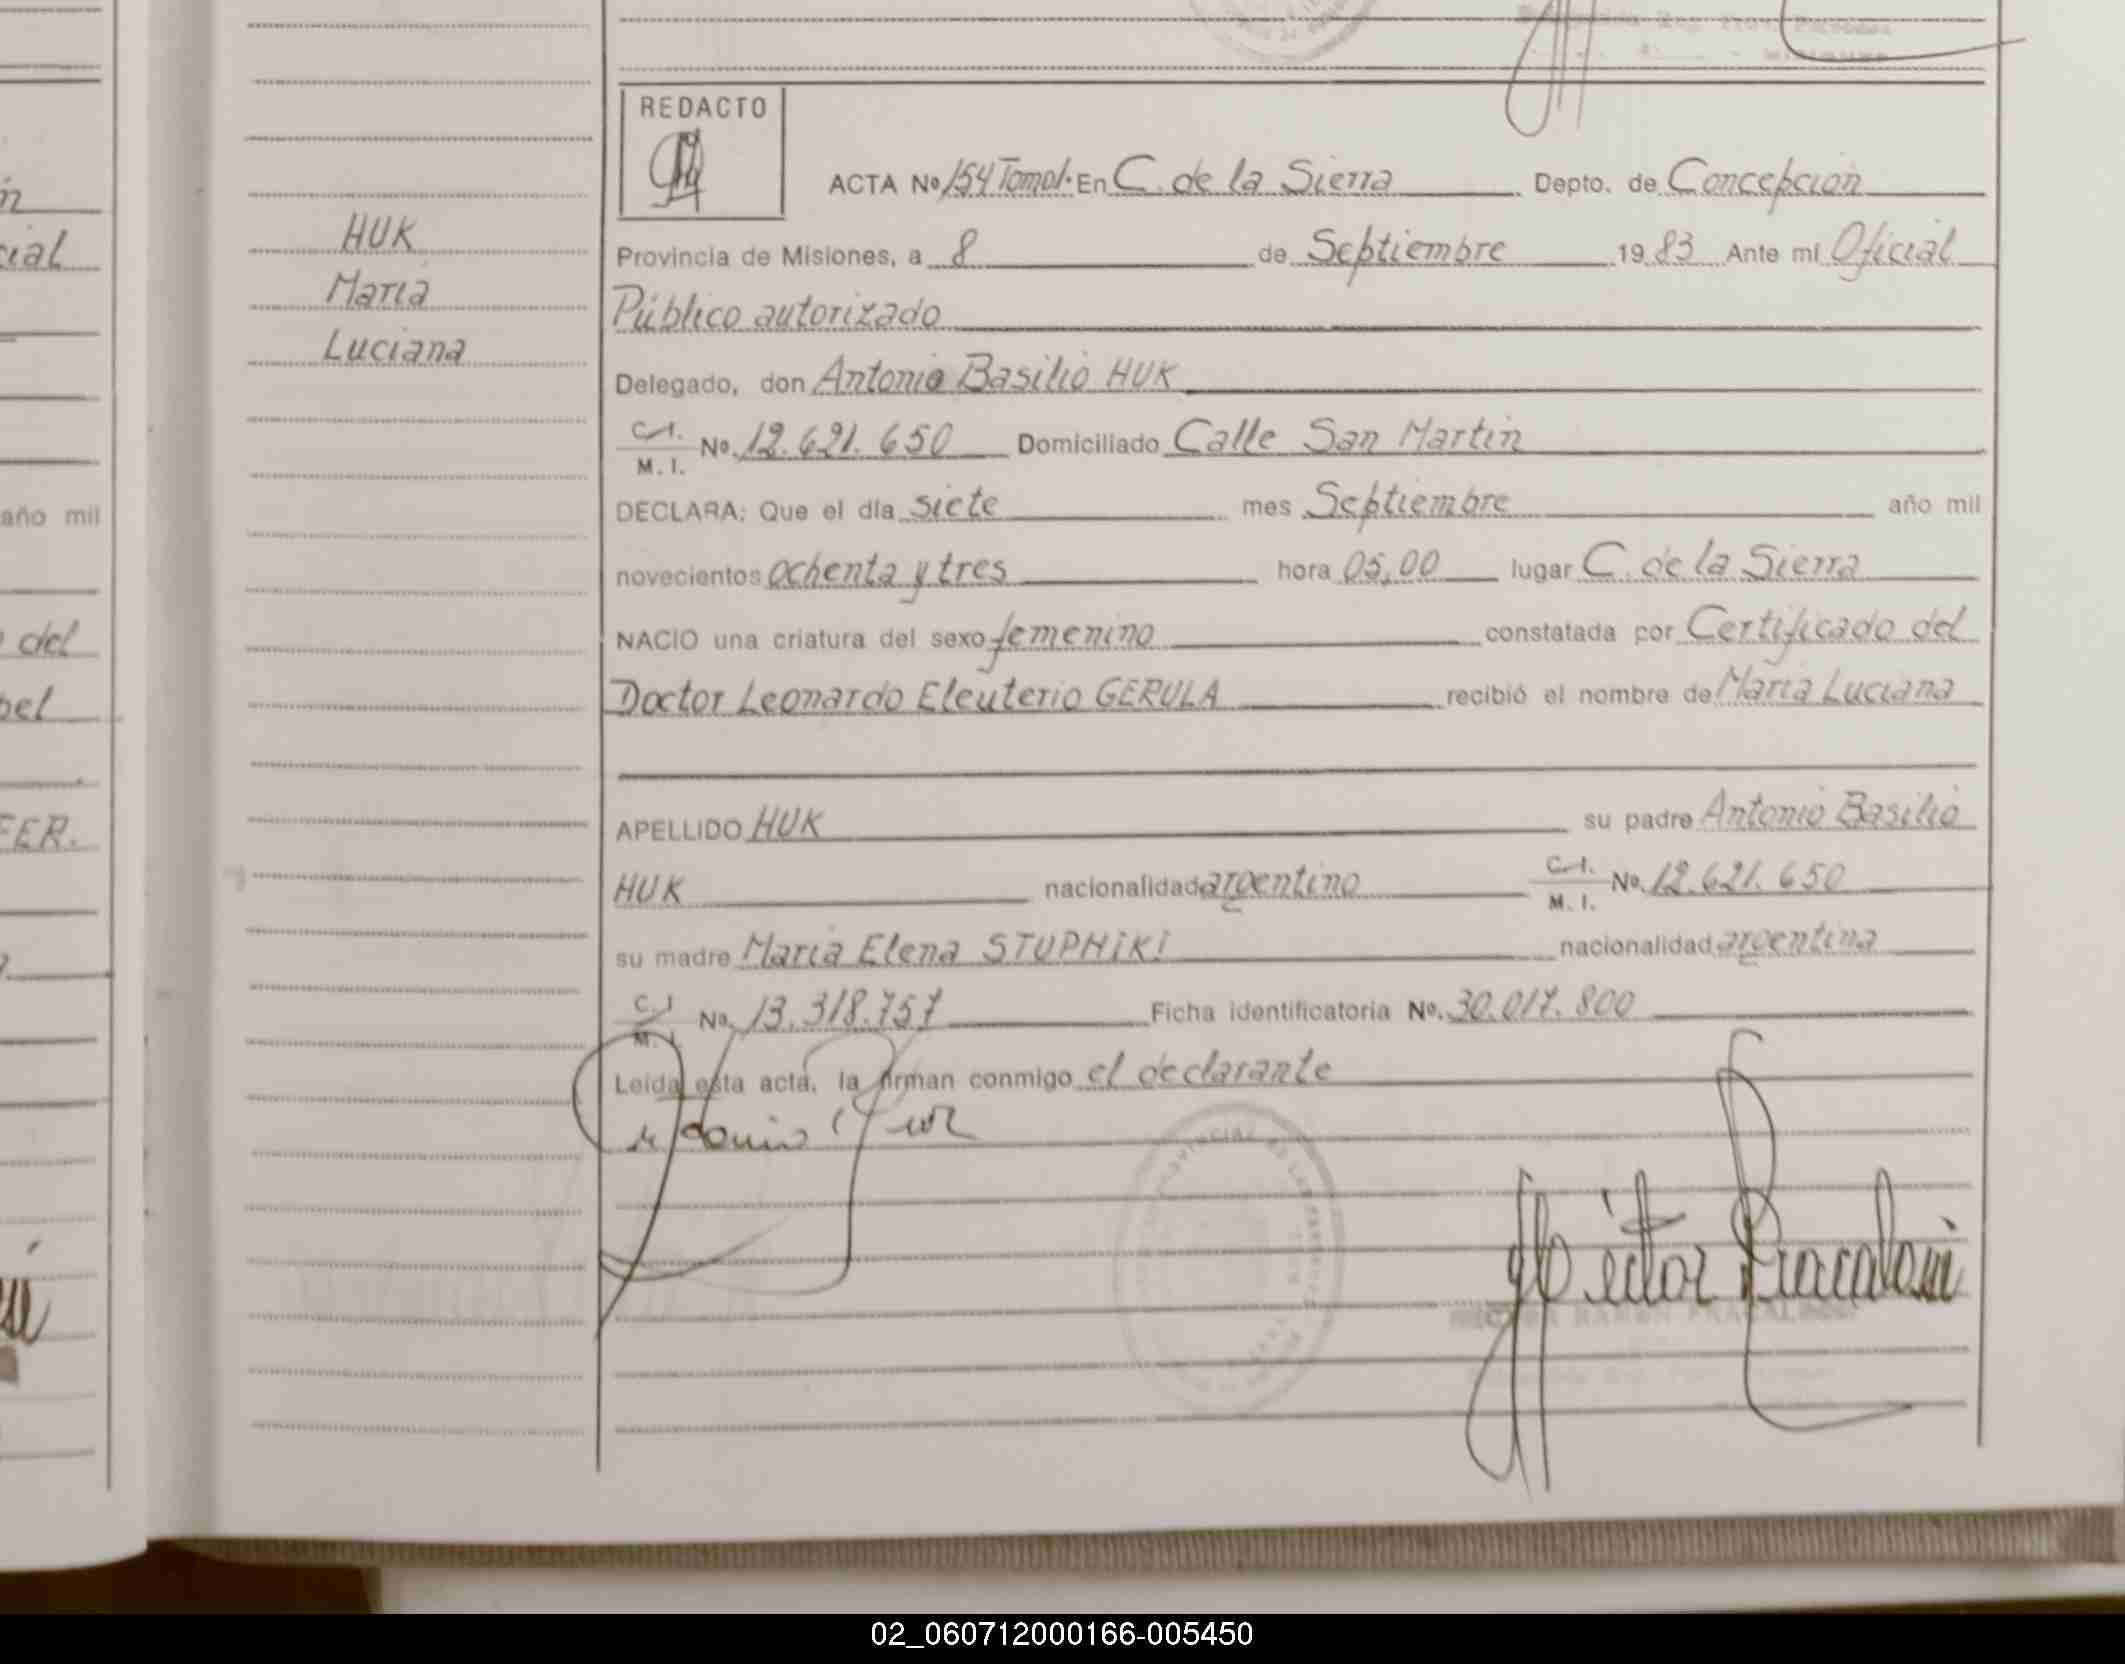 REDACTO
ACTA No 154 Tomo I. En C. de la Sierra Depto. de Concepción
Provincia de Misiones, a 8 de Septiembre 19 83 Ante mi Oficial
Público autorizado
Delegado, don Antonio Basilio HUK
C.I. M.I. No. 12.621.650 Domiciliado Calle San Martín
DECLARA: Que el día siete mes Septiembre año mil
novecientos ochenta y tres hora 05,00 lugar C. de la Sierra
NACIO una criatura del sexo femenino constatada por Certificado del
Doctor Leonardo Eleuterio GERULA recibió el nombre de María Luciana
APELLIDO HUK su padre Antonio Basilio
HUK nacionalidad argentino C.I. M.I. No. 12.621.650
su madre María Elena STUPHIKI nacionalidad argentina
C.I. M.I. No. 13.318.757 Ficha identificatoria No. 30.017.800
Leída esta acta, la firman conmigo el declarante
HUK
María
Luciana
cial
año mil
del
bel
FER.
02_060712000166-005450